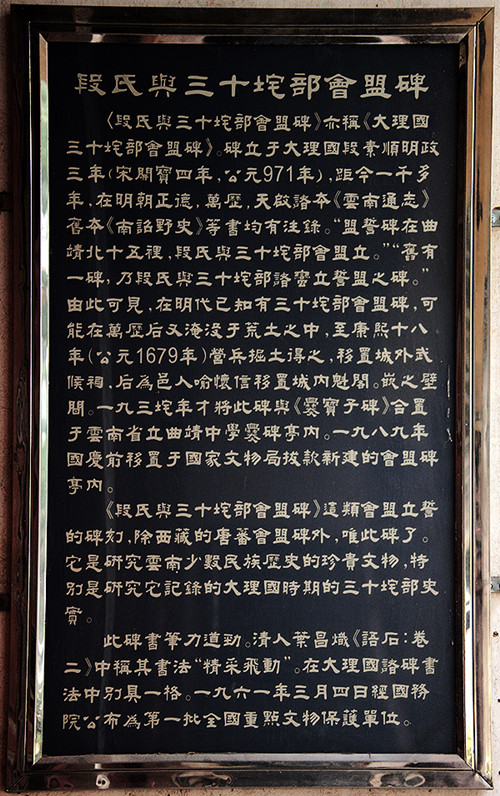 段氏與三十垞部會盟碑
《段氏與三十垞部會盟碑》亦稱《大理國
三十垞部會盟碑》。碑立于大理國段素順明政
三年(宋開寶四年,公元971年),距今一千多
年,在明朝正德,萬歷,天啟諸本《雲南通志》
舊本《南詔野史》等書均有注錄。“盟誓碑在曲
靖北十五裡,段氏與三十垞部會盟立。”“舊有
一碑,乃段氏與三十垞部諸蠻立誓盟之碑。”
由此可見,在明代已知有三十垞部會盟碑,可
能在萬歷后又淹沒于荒土之中,至康熙十八
年(公元1679年)營兵掘土得之,移置城外武
候祠,后為邑人喻懷信移置城內魁閣。嵌之壁
間。一九三垞年才將此碑與《爨寶子碑》合置
于雲南省立曲靖中學爨碑亭內。一九八九年
國慶前移置于國家文物局拔款新建的會盟碑
亭內。
《段氏與三十垞部會盟碑》這類會盟立誓
的碑刻,除西藏的唐蕃會盟碑外,唯此碑了。
它是研究雲南少數民族歷史的珍貴文物,特
別是研究它記錄的大理國時期的三十垞部史
實。
此碑書筆力遒勁。清人葉昌熾《語石:卷
二》中稱其書法“精采飛動”。在大理國諸碑書
法中別具一格。一九六一年三月四日經國務
院公布為第一批全國重點文物保護單位。